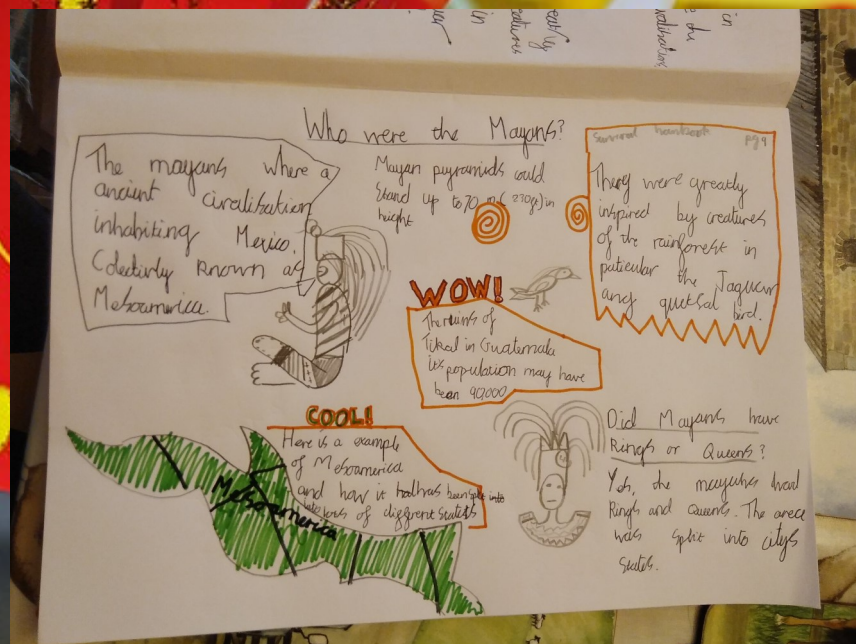 Who were the Mayans?
The mayans where a
ancint civalisation
inhabiting Mexico.
Colectivly known as
Mesoamerica.
Mayan pyyramids could
Stand up to 70 m( 230ft) in
height
survival handbook pg 9
They were greatly
inspired by creatures
of the rainforest in
paticular the Jaguar
any quetsal bird.
WOW!
The ruins of
Tikal in Guatemala
its population may have
been 90,000
COOL!
Here is a example
of Mesoamerica
and how it has been split into
into lots of diffrent states
Mesoamerica
Did Mayans have
Kings or Queens?
Yes, the mayans had
Kings and Queens. The area
was split into citys
states.